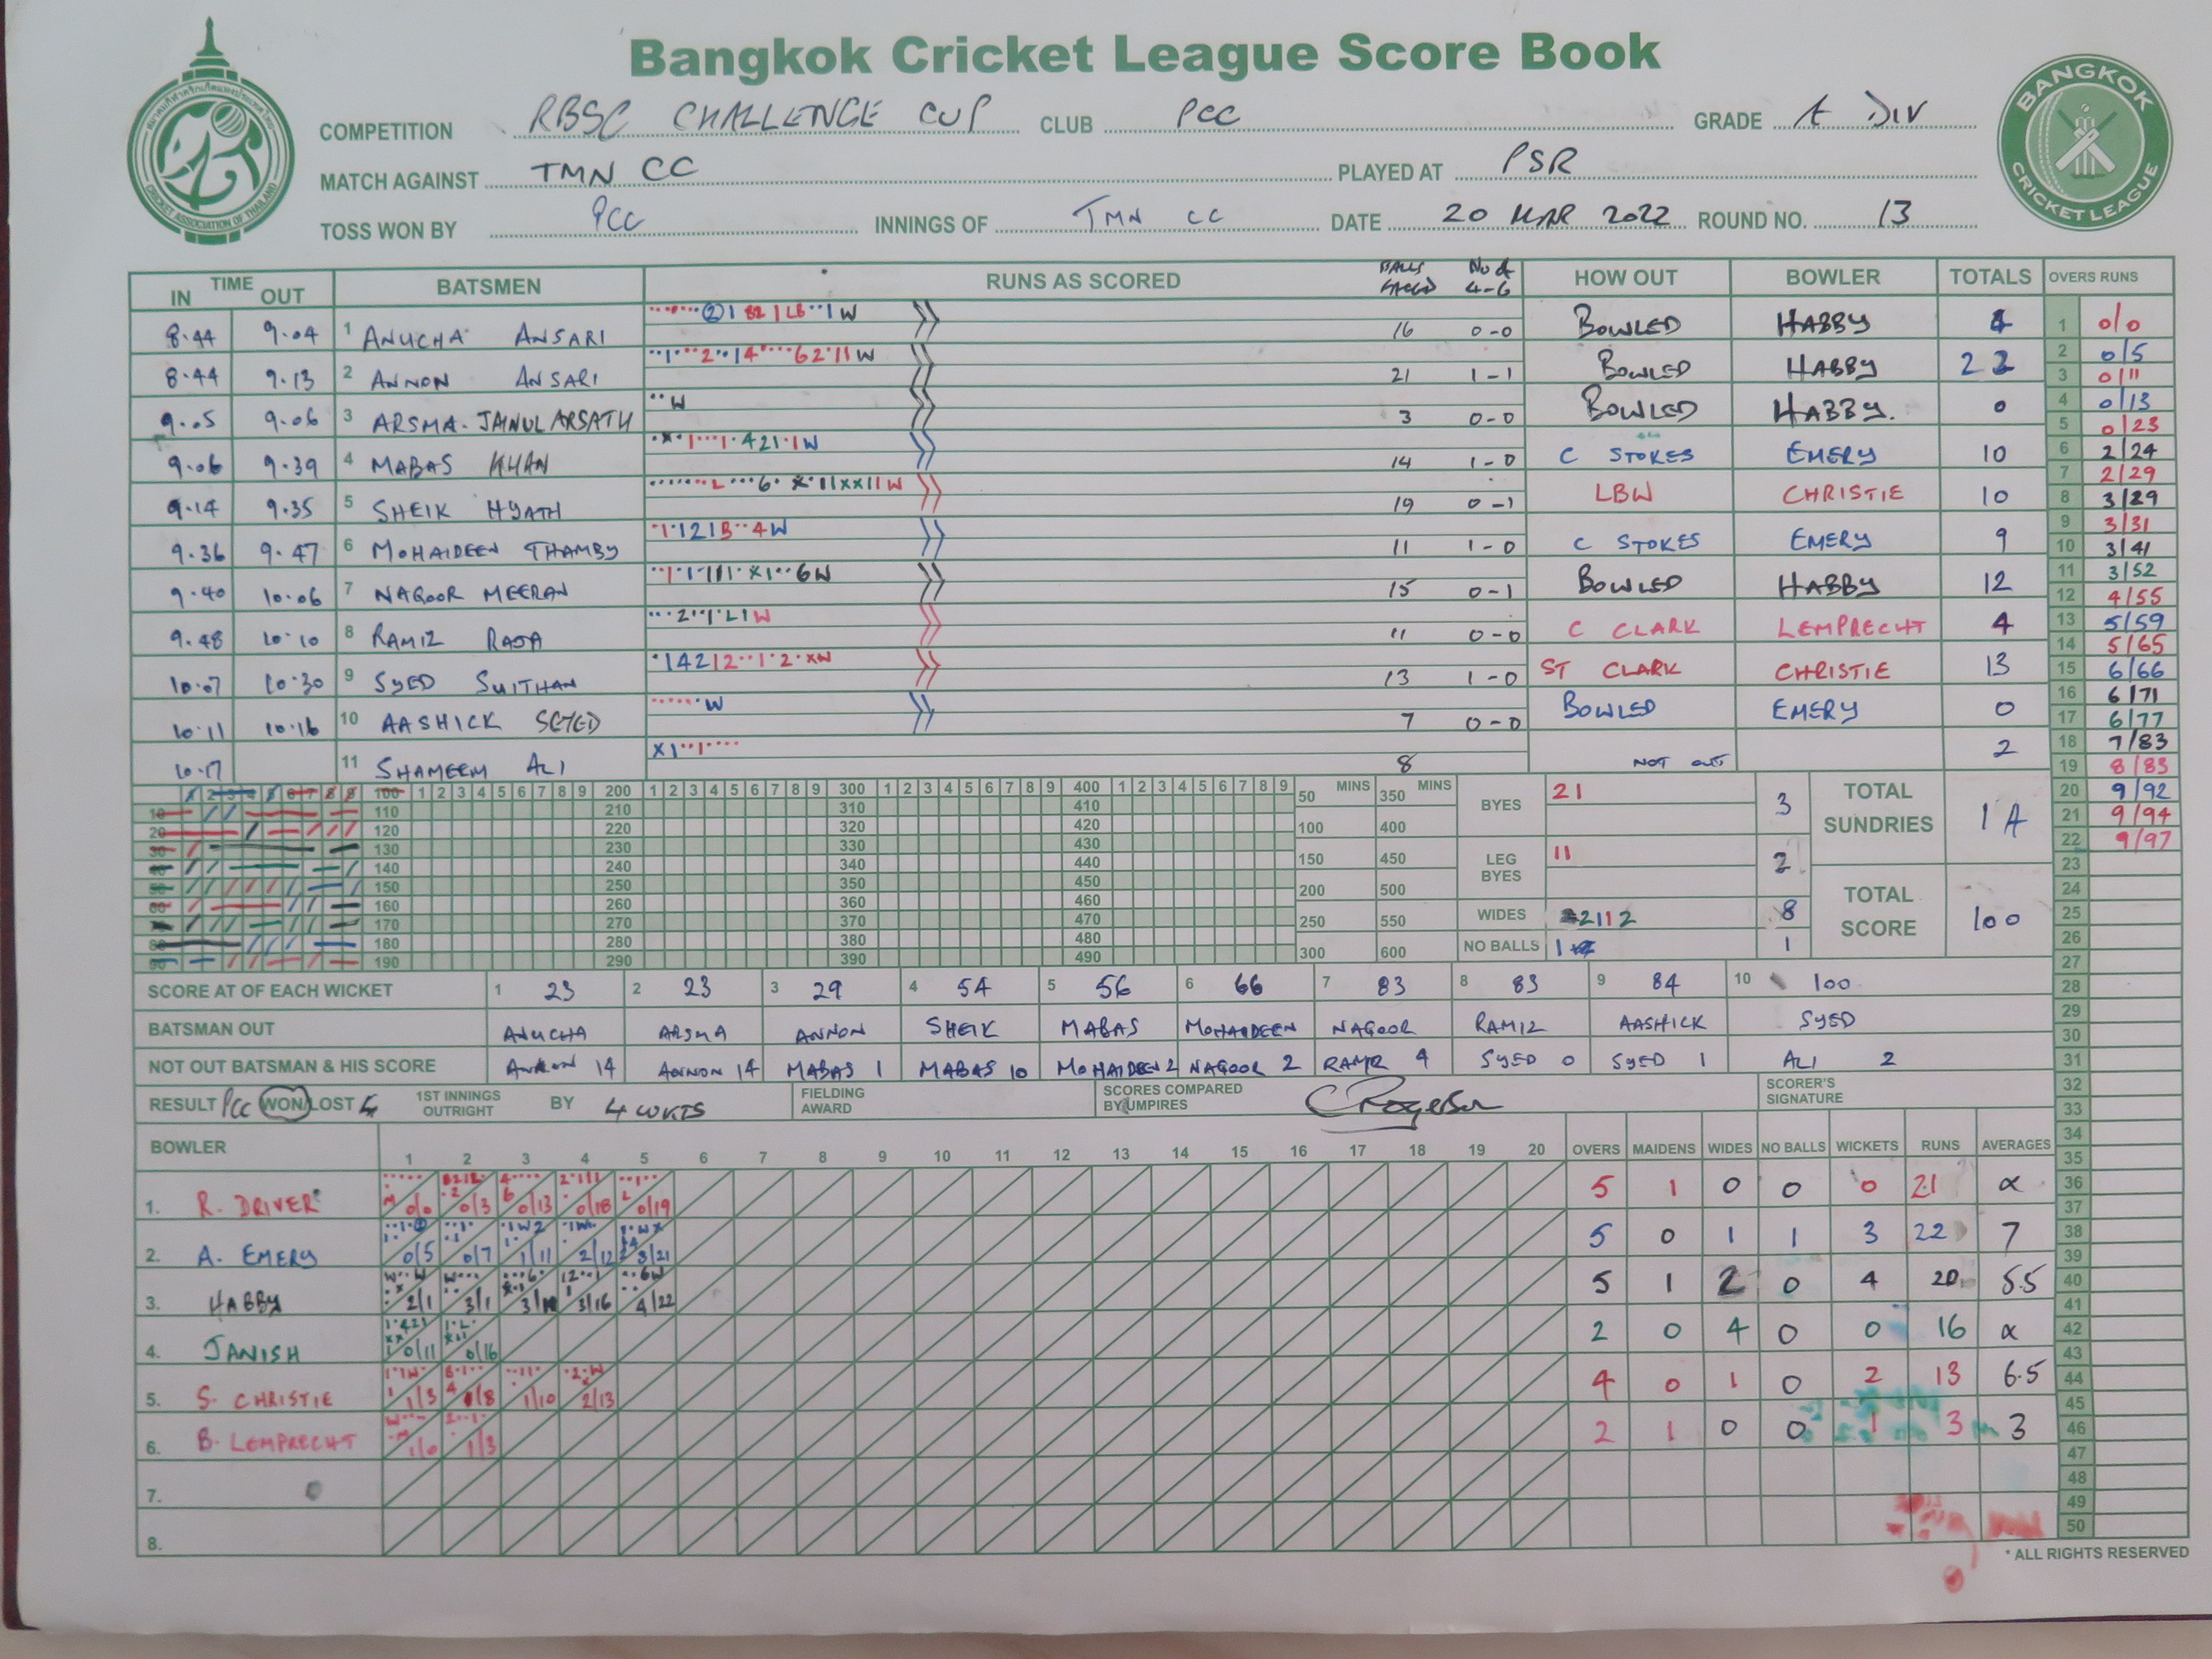 Bangkok Cricket League Score Book
COMPETITION RBSC CHALLENGE CUP CLUB PCC GRADE A DIV
MATCH AGAINST TMN CC PLAYED AT PSR
TOSS WON BY PCC INNINGS OF TMN CC DATE 20 MAR 2022 ROUND NO. 13
BANGKOK CRICKET LEAGUE
CRICKET ASSOCIATION OF THAILAND
TIME IN OUT BATSMEN RUNS AS SCORED BALLS FACED No of 4-6 HOW OUT BOWLER TOTALS OVERS RUNS
8.44 9.04 1 ANUCHA ANSARI 16 0-0 BOWLED HABBY 4
8.44 9.13 2 ANNON ANSARI 21 1-1 BOWLED HABBY 22
9.05 9.06 3 ARSMA JAINULARSATH 3 0-0 BOWLED HABBY. 0
9.06 9.39 4 MABAS KHAN 14 1-0 C STOKES EMERY 10
9.14 9.35 5 SHEIK HYATH 19 0-1 LBW CHRISTIE 10
9.36 9.47 6 MOHAIDEEN THAMBY 11 1-0 C STOKES EMERY 9
9.40 10.06 7 NAGOOR MEERAN 15 0-1 BOWLED HABBY 12
9.48 10.10 8 RAMIZ RAJA 11 0-0 C CLARK LEMPRECHT 4
10.07 10.30 9 SYED SUITHAN 13 1-0 ST CLARK CHRISTIE 13
10.11 10.16 10 AASHICK SEYED 7 0-0 BOWLED EMERY 0
10.17 11 SHAMEEM ALI 8 NOT OUT 2
1 0/0
2 0/5
3 0/11
4 0/13
5 0/23
6 2/24
7 2/29
8 3/29
9 3/31
10 3/41
11 3/52
12 4/55
13 5/59
14 5/65
15 6/66
16 6/71
17 6/77
18 7/83
19 8/83
20 9/92
21 9/94
22 9/97
23
24
25
26
27
28
29
30
31
32
33
34
35
36
37
38
39
40
41
42
43
44
45
46
47
48
49
50
100 1 2 3 4 5 6 7 8 9 200 1 2 3 4 5 6 7 8 9 300 1 2 3 4 5 6 7 8 9 400 1 2 3 4 5 6 7 8 9
110 210 310 410
120 220 320 420
130 230 330 430
140 240 340 440
150 250 350 450
160 260 360 460
170 270 370 470
180 280 380 480
190 290 390 490
MINS MINS
50 350
100 400
150 450
200 500
250 550
300 600
BYES 21 3
LEG BYES 11 2
WIDES 2112 8
NO BALLS 1 1
TOTAL SUNDRIES 14
TOTAL SCORE 100
SCORE AT OF EACH WICKET 1 23 2 23 3 29 4 54 5 56 6 66 7 83 8 83 9 84 10 100
BATSMAN OUT ANUCHA ARSMA ANNON SHEIK MABAS MOHAIDEEN NAGOOR RAMIZ AASHICK SYED
NOT OUT BATSMAN & HIS SCORE ANNON 14 ANNON 14 MABAS 1 MABAS 10 MOHAIDEEN 2 NAGOOR 2 RAMIZ 4 SYED 0 SYED 1 ALI 2
RESULT PCC WON/LOST 1ST INNINGS OUTRIGHT BY 4 WKTS FIELDING AWARD SCORES COMPARED BY UMPIRES CRogerson SCORER'S SIGNATURE
BOWLER 1 2 3 4 5 6 7 8 9 10 11 12 13 14 15 16 17 18 19 20 OVERS MAIDENS WIDES NO BALLS WICKETS RUNS AVERAGES
1. R. DRIVER 0/0 0/3 0/13 0/18 0/19 5 1 0 0 0 21 α
2. A. EMERY 0/5 0/7 1/11 2/12 3/21 5 0 1 1 3 22 7
3. HABBY 2/1 3/1 3/10 3/16 4/22 5 1 2 0 4 20 5.5
4. JANISH 0/11 0/16 2 0 4 0 0 16 α
5. S. CHRISTIE 1/3 1/8 1/10 2/13 4 0 1 0 2 13 6.5
6. B. LEMPRECHT 1/0 1/3 2 1 0 0 1 3 3
7.
8.
* ALL RIGHTS RESERVED